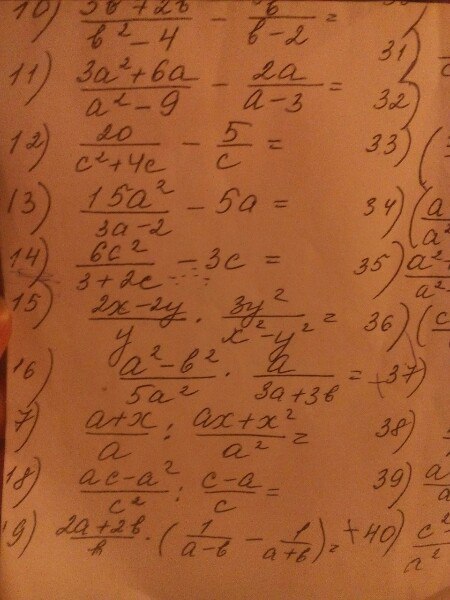 10) (3b² + 2b)/(b² - 4) - b/(b - 2) =
11) (3a² + 6a)/(a² - 9) - 2a/(a - 3) =
12) 20/(c² + 4c) - 5/c =
13) 15a²/(3a - 2) - 5a =
14) 6c²/(3 + 2c) - 3c =
15) (2x - 2y)/y · 3y²/(x² - y²) =
16) (a² - b²)/5a² · a/(3a + 3b) =
7) (a + x)/a : (ax + x²)/a² =
18) (ac - a²)/c² : (c - a)/c =
9) (2a + 2b)/b · (1/(a - b) - 1/(a + b)) =
31)
32)
33) (
34) (a/a²
35) a²/a²
36) (c
+37)
38)
39) a/a
+40) c²/a²